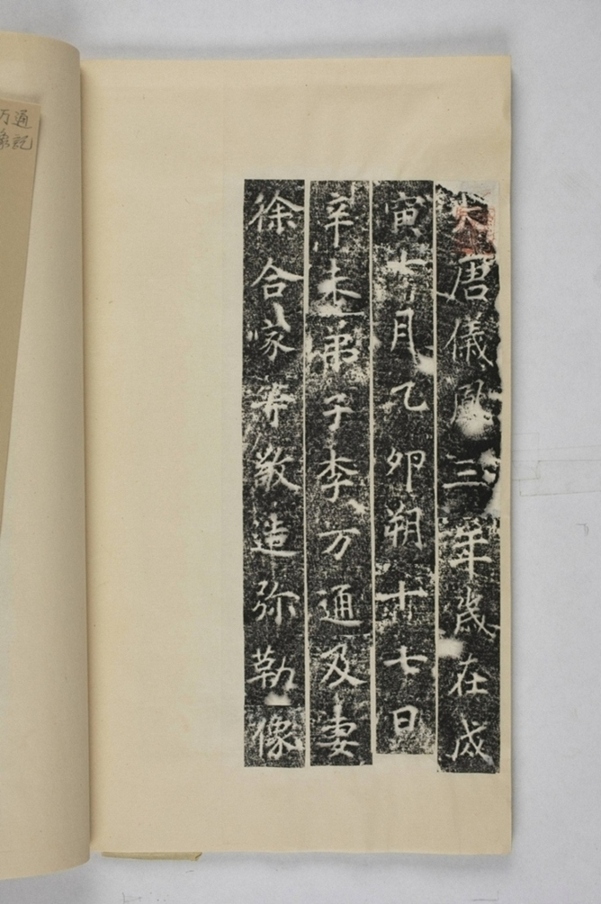 大唐儀鳳三年歲在戊
寅七月乙卯朔十七日
辛未弟子李万通及妻
徐合家等敬造弥勒像
万通
像記